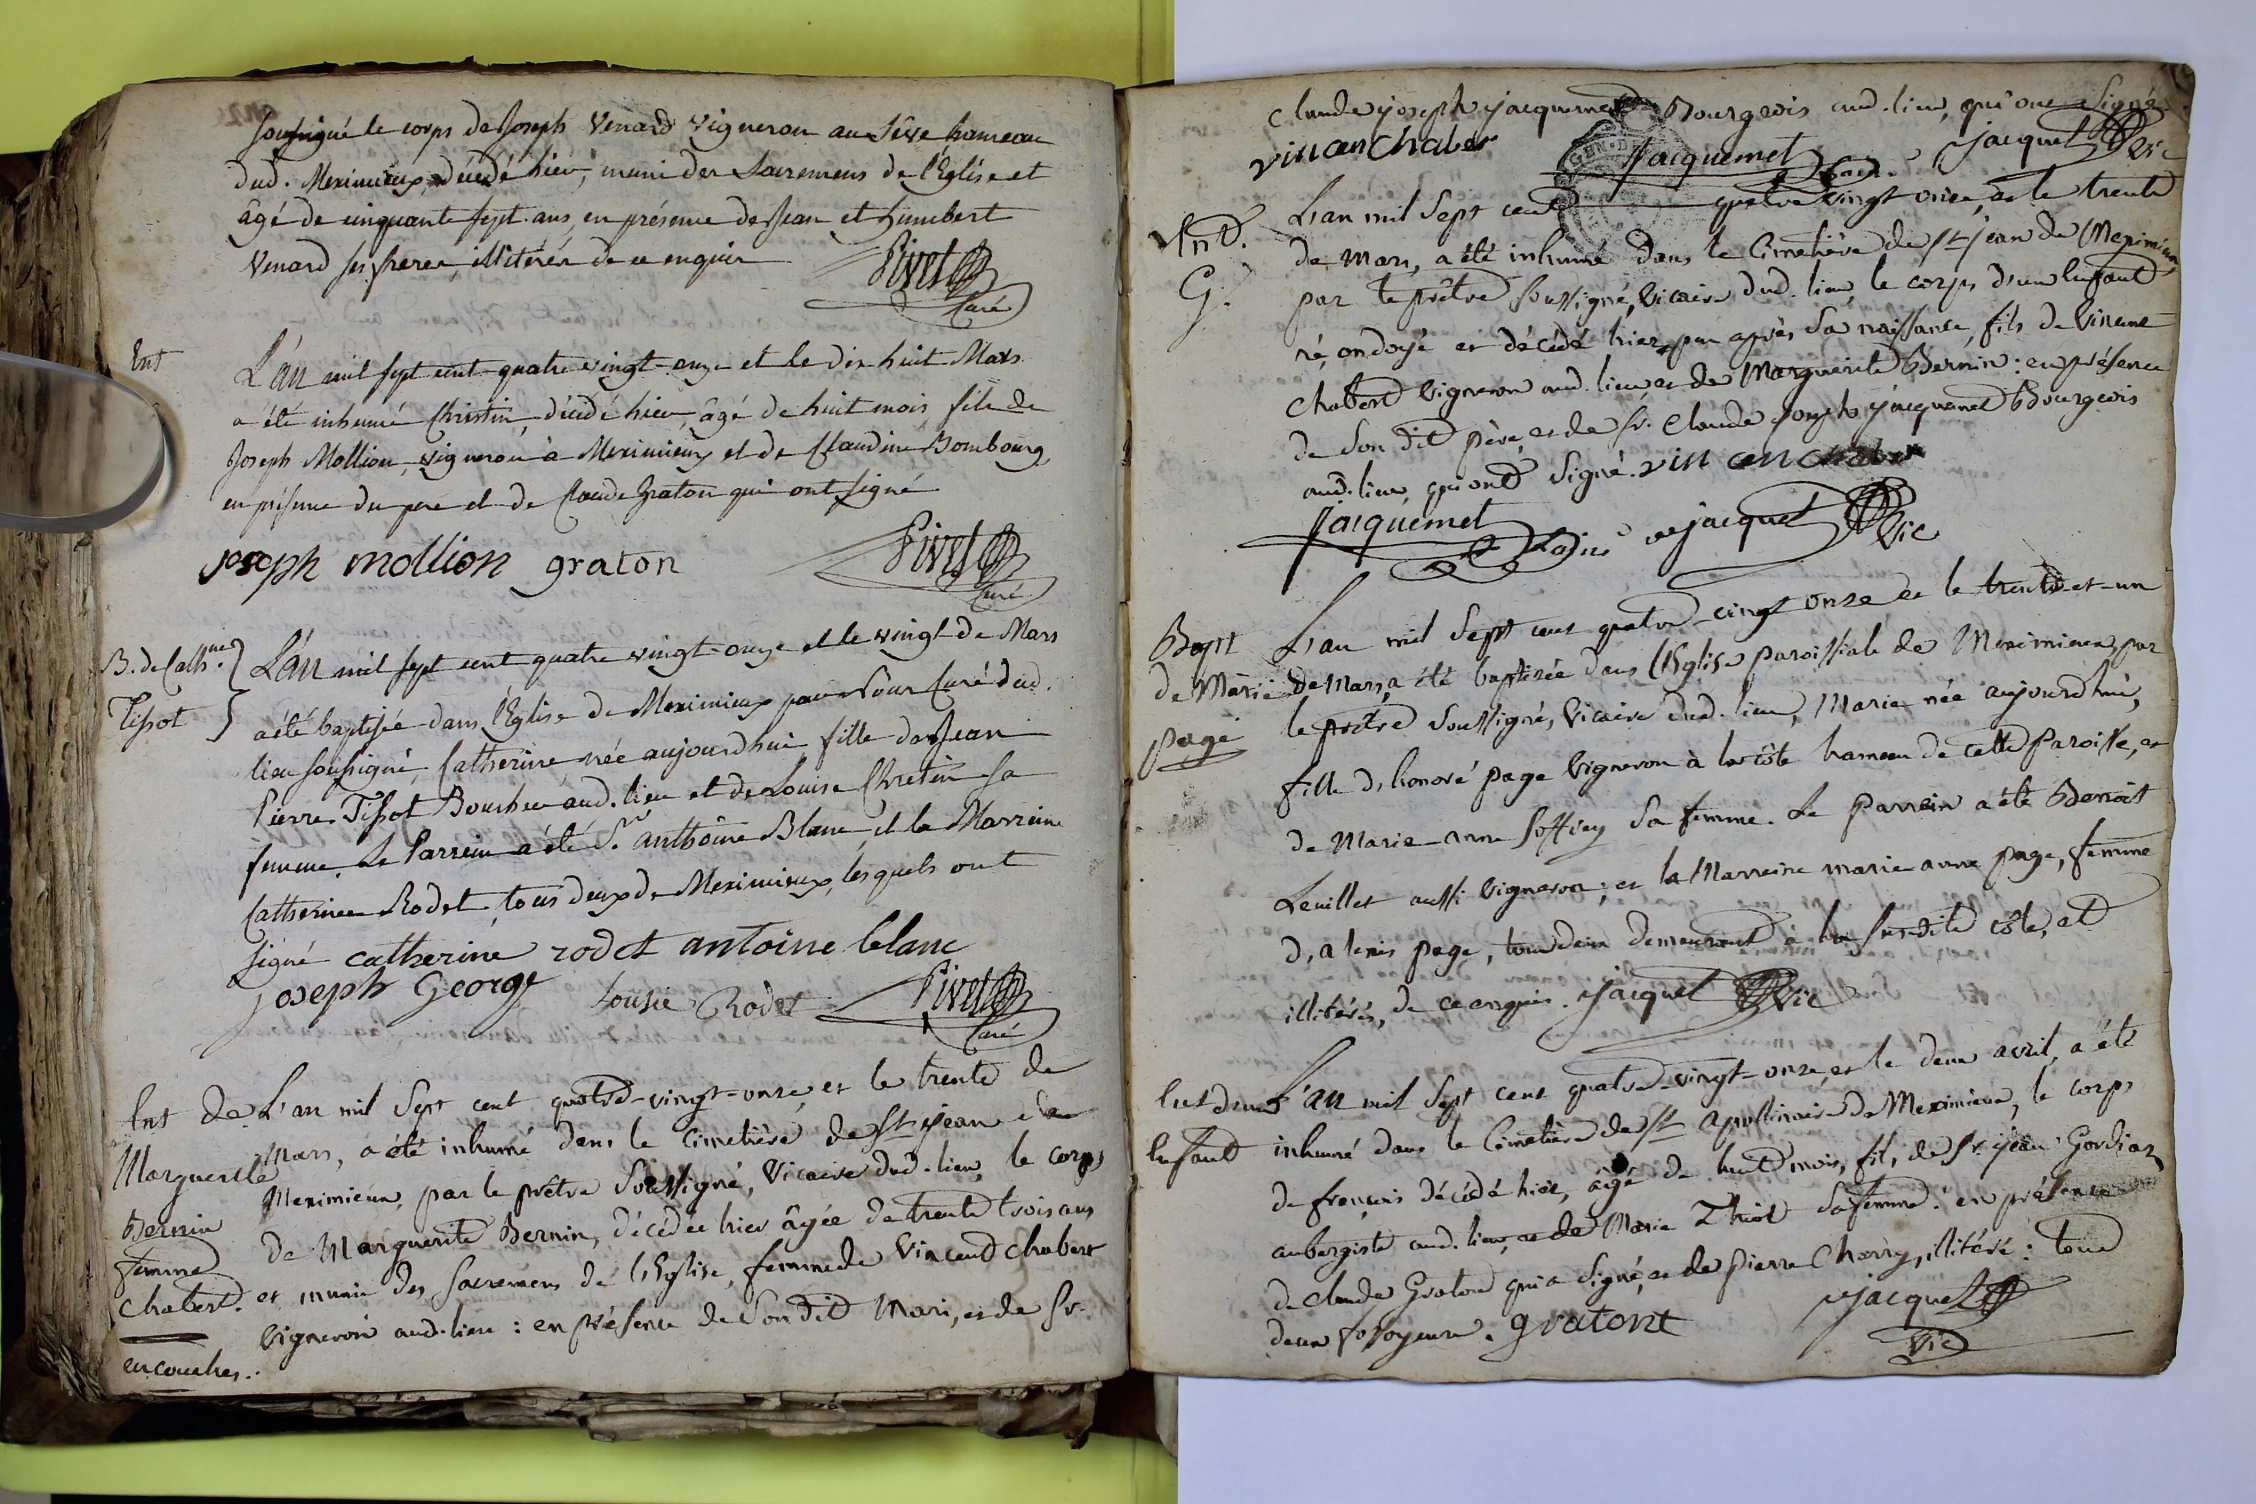 soussigné le corps de Joseph Venard vigneron au hameau
dud. Meximieux, décédé hier, muni des Sacremens de l'Eglise et
âgé de cinquante sept ans, en présence de Jean et humbert
Venard ses freres, illitérés de ce enquis
Pivet
Curé
Ent
L'an mil sept cent quatre vingt-onze et le dix huit Mars
a été inhumé Christin, décédé hier, âgé de huit mois, fils de
Joseph Mollion, vigneron à Meximieux et de Claudine Bombourg,
en présence du pere et de Claude Graton qui ont signé
joseph mollion graton
Pivet
Curé
B. de Cathne.
Tissot
L'an mil sept cent quatre vingt-onze et le vingt de Mars
a été baptisée dans l'Eglise de Meximieux par Nous Curé dud.
lieu soussigné, Catherine née aujourdhui fille de Jean
Pierre Tissot aud. lieu et de Louise Chretin sa
femme. Le Parrein a été Sr. anthoine Blanc et la Marreine
Catherine Rodet, tous deux de Meximieux, lesquels ont
signé catherine rodet antoine blanc
joseph George Louise Rodet Pivet
Curé
Ent de
Marguerite
Bernin
femme
Chabert.
en couches.
L'an mil Sept cent quatre-vingt-onze, et le trente de
Mars, a été inhumé dans le Cimetière de St jean de
Meximieux, par le prêtre Soussigné, Vicaire dud. lieu, le corps
de Marguerite Bernin, décédée hier âgée de trente trois ans
et munie des Sacremens de l'Eglise, femme de Vincend Chabert
Vigneron aud. lieu : en présence de Son dit Mari, et de Sr.
Claude joseph jacquemet Bourgeois aud. lieu, qui ont Signé.
vincen Chaber Jacquemet jacquet Vic
Ent.
G.
L'an mil Sept cent quatre vingt onze, et le trente
de Mars, a été inhumé dans le Cimetière de St jean de Meximieux,
par le prêtre Soussigné, Vicaire dud. lieu, le corps d'un Enfant
né, ondoyé et décédé hier peu après Sa naissance, fils de Vincent
Chabert Vigneron aud. lieu, et de Marguerite Bernin : en présence
de Son dit père, et de Sr. Claude joseph jacquemet Bourgeois
aud. lieu, qui ont Signé. vin cen chaber
Jacquemet jacquet Vic
Bapt
de Marie
page
L'an mil Sept cent quatre-vingt onze et le trente-et-un
de Mars, a été baptisée dans l'Eglise paroissiale de Meximieux, par
le prêtre Soussigné, Vicaire dud. lieu, Marie née aujourdhui,
fille d'honoré page Vigneron à la côte hameau de cette paroisse, et
de Marie-anne Soffrey Sa femme. Le parrein a été Benoit
Levillet aussi Vigneron ; et la Marreine marie anne page, femme
d'alexis page, tous deux demeurant à la Susdite côte, et
illitérés, de ce enquis. jacquet Vic
Ent d'un
Enfant
L'an mil Sept cent quatre-vingt-onze, et le deux avril, a été
inhumé dans le Cimetière de St Apollinaire de Meximieux, le corps
de françois décédé hier, âgé de huit mois, fils de Sr. jean Gordian
aubergiste aud. lieu, et de Marie Sa femme : en présence
de Claude Graton qui a Signé, et de pierre Charry, illitéré : tous
deux fossoyeurs. gratont
jacquet
Vic